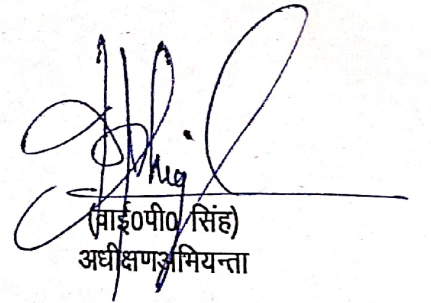 (वाई०पी० सिंह)
अधीक्षणअभियन्ता